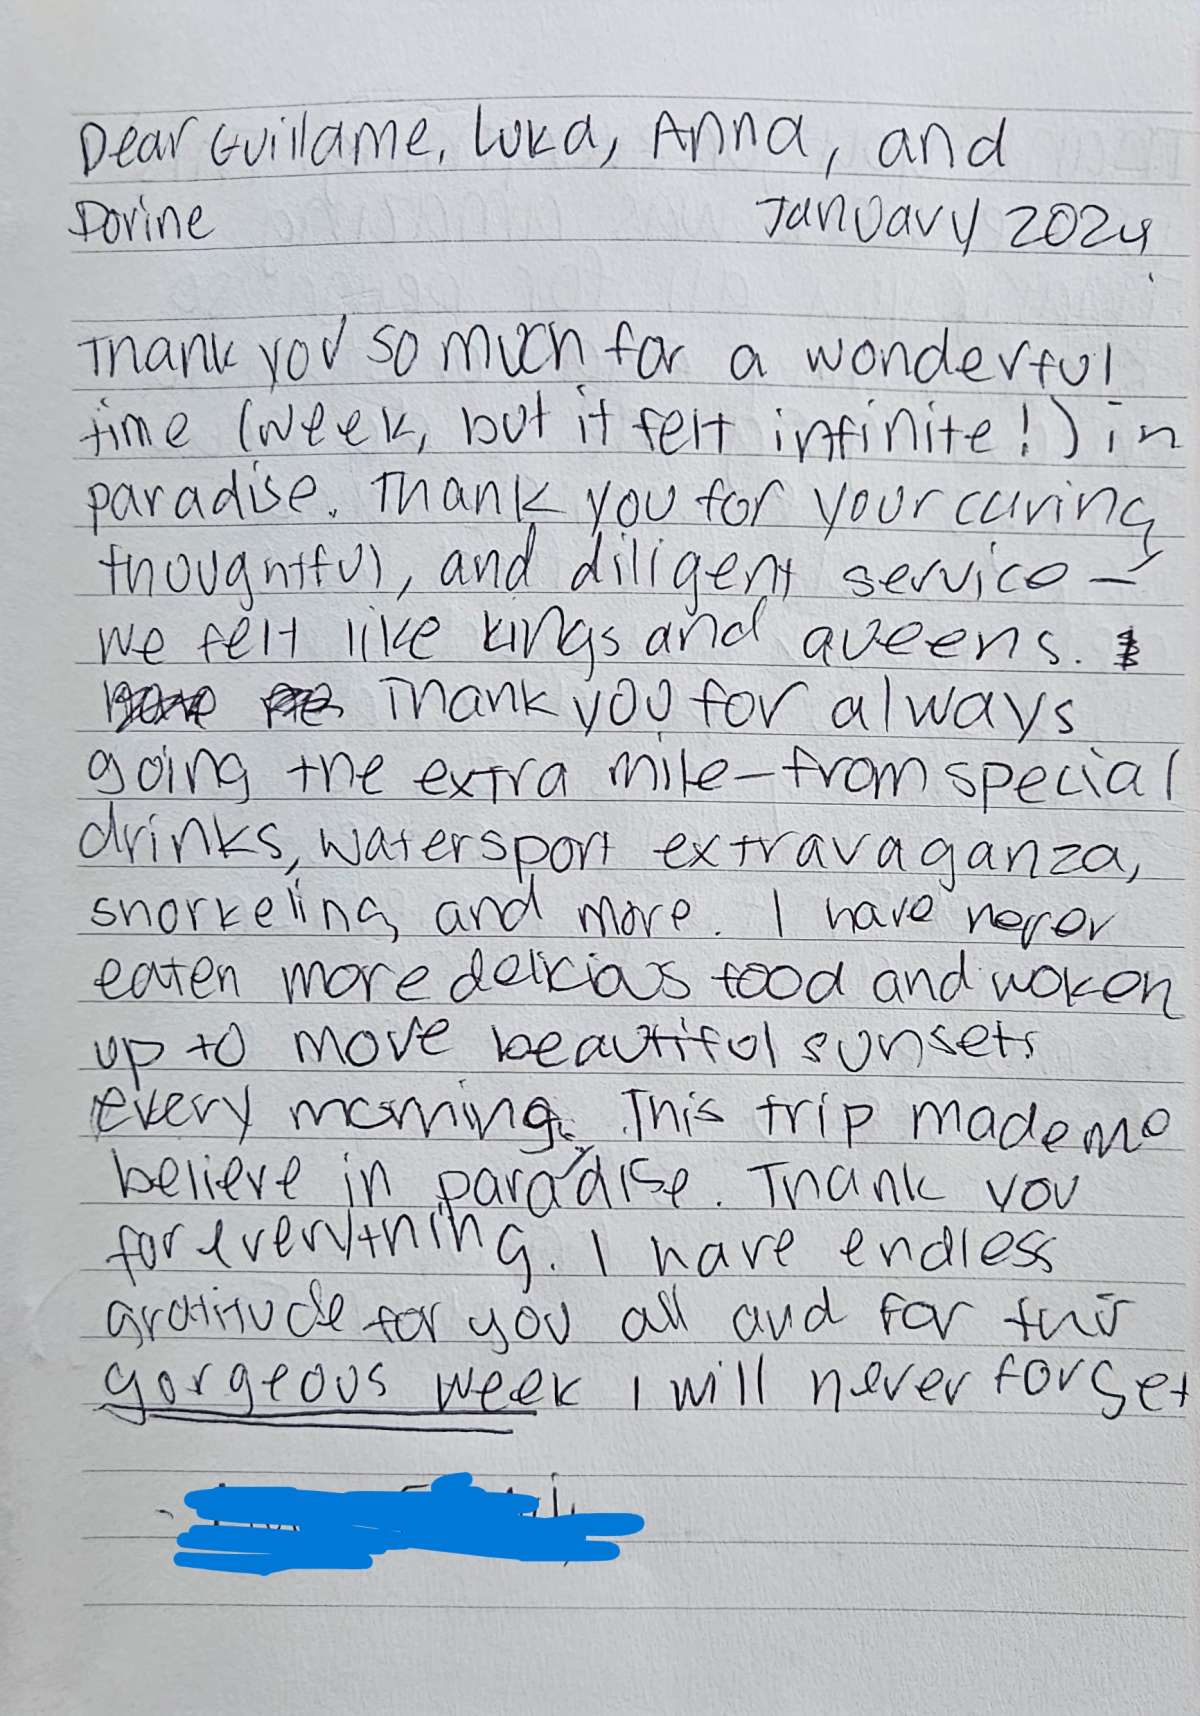 Dear Guillame, Luka, Anna, and
Dorine January 2024
Thank you so much for a wonderful
time (week, but it felt infinite!) in
paradise. Thank you for your caring,
thoughtful, and diligent service –
we felt like kings and queens.
Thank you for always
going the extra mile – from special
drinks, watersport extravaganza,
snorkeling and more. I have never
eaten more delicious food and woken
up to more beautiful sunsets
every morning. This trip made me
believe in paradise. Thank you
for everything. I have endless
gratitude for you all and for this
gorgeous week I will never forget